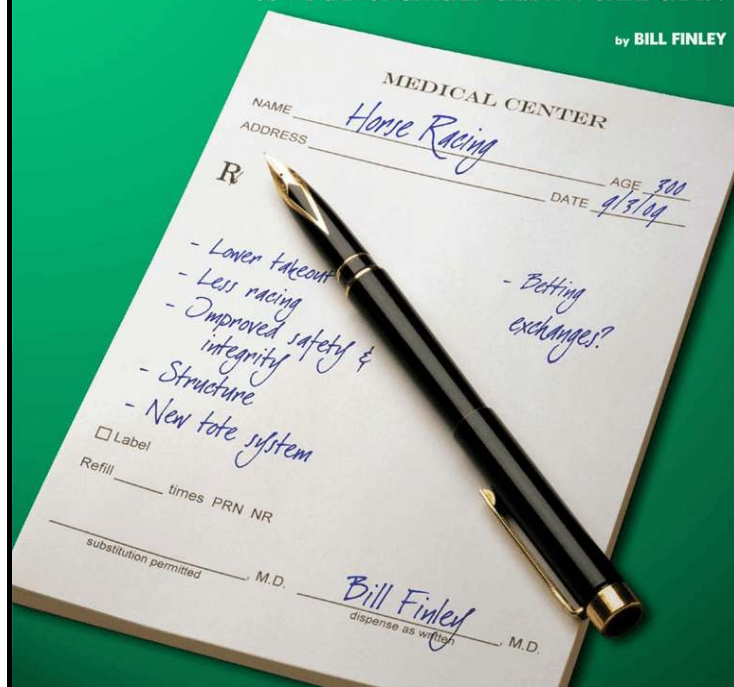 by BILL FINLEY
MEDICAL CENTER
NAME Horse Racing
AGE 300
ADDRESS
DATE 9/3/09
Rx
- Lower takeout
- Less racing
- Improved safety &
integrity
- Structure
- New tote system
- Betting
exchanges?
Label
Refill ____ times PRN NR
substitution permitted, M.D.
Bill Finley
dispense as written, M.D.